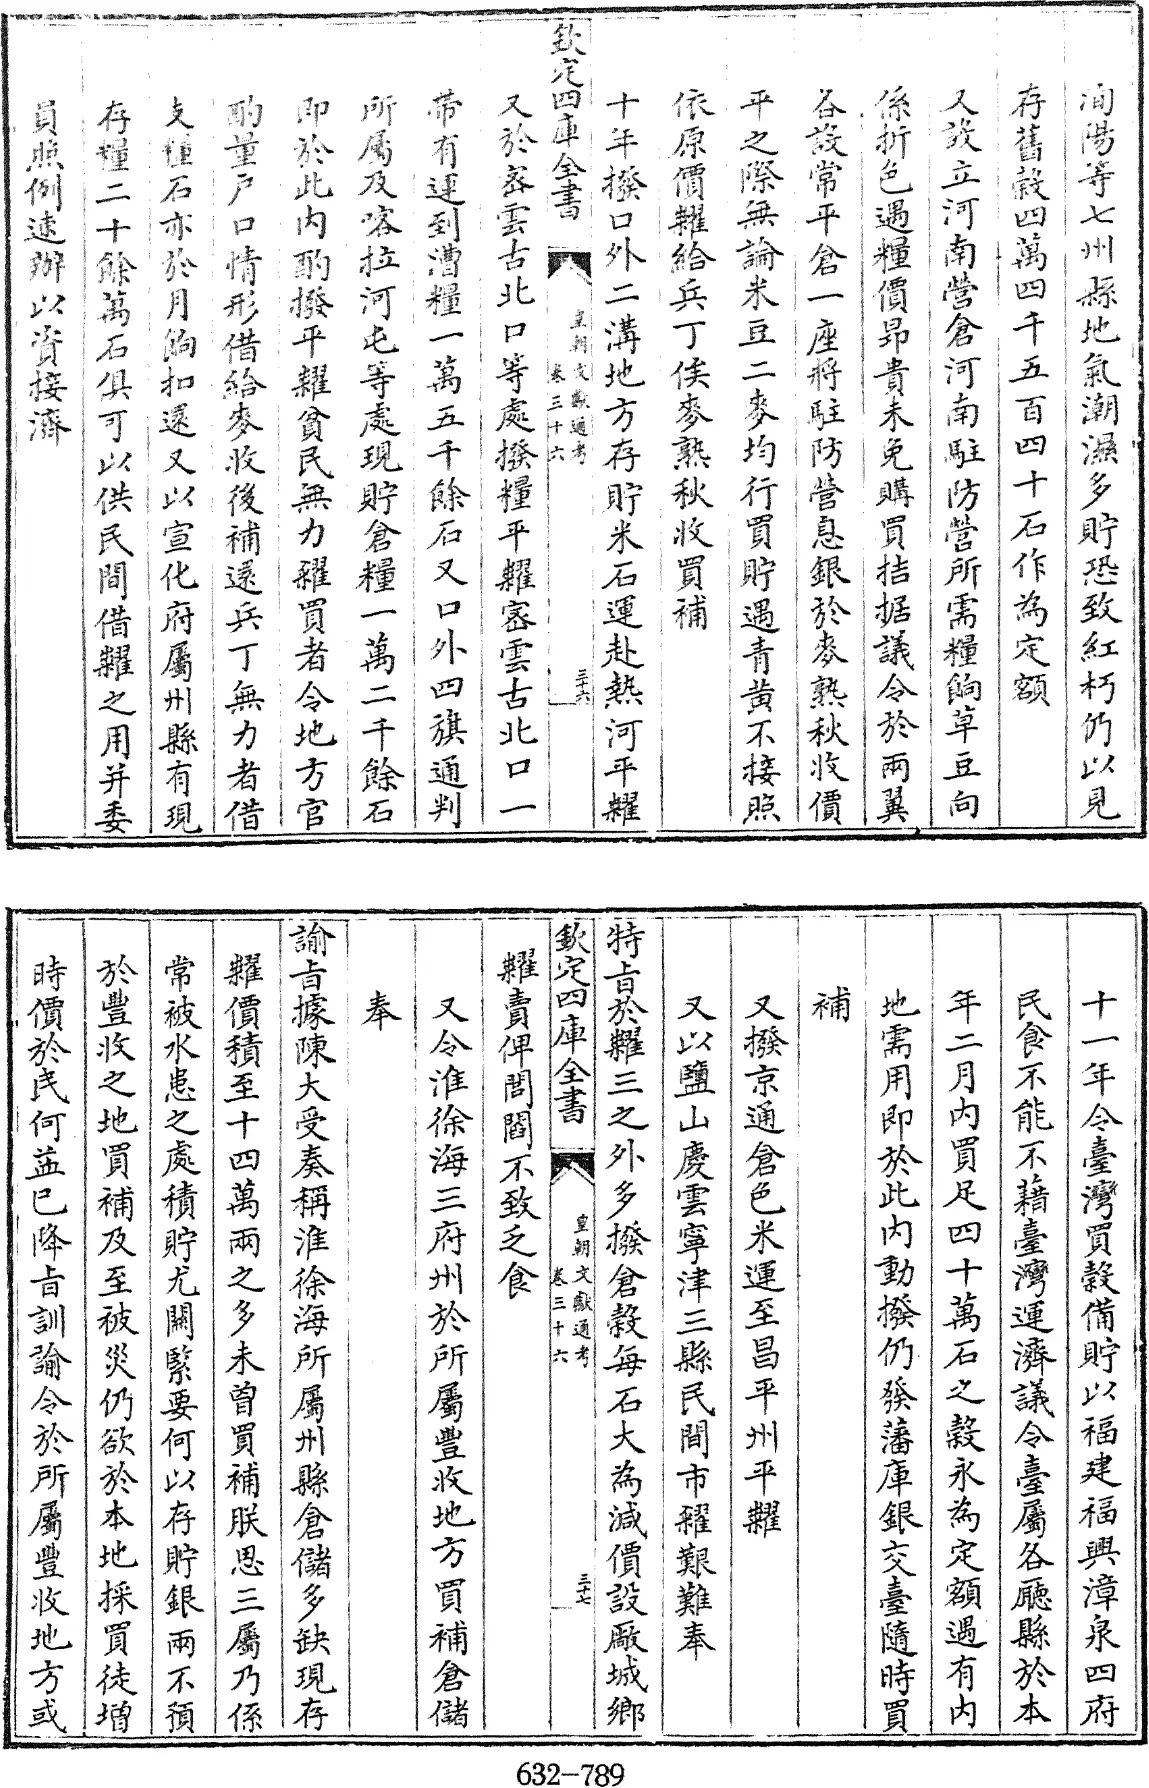 洵陽等七州縣地氣潮濕多貯恐致紅朽仍以見
存舊穀四萬四千五百四十石作為定額
又設立河南營倉河南駐防營所需糧餉草豆向
係折色遇糧價昂貴未免購買拮据議令於兩翼
各設常平倉一座將駐防營息銀於麥熟秋收價
平之際無論米豆二麥均行買貯遇青黃不接照
依原價糶給兵丁俟麥熟秋收買補
十年撥口外二溝地方存貯米石運赴熱河平糶
欽定四庫全書
皇朝文獻通考
卷三十六
三十六
又於密雲古北口等處撥糧平糶密雲古北口一
帶有運到漕糧一萬五千餘石又口外四旗通判
所屬及喀拉河屯等處現貯倉糧一萬二千餘石
即於此內酌撥平糶貧民無力糴買者令地方官
酌量戶口情形借給麥收後補還兵丁無力者借
支種石亦於月餉扣還又以宣化府屬州縣有現
存糧二十餘萬石俱可以供民間借糶之用并委
員照例速辦以資接濟
十一年令臺灣買穀備貯以福建福興漳泉四府
民食不能不藉臺灣運濟議令臺屬各廳縣於本
年二月內買足四十萬石之穀永為定額遇有內
地需用即於此內動撥仍發藩庫銀交臺隨時買
補
又撥京通倉色米運至昌平州平糶
又以鹽山慶雲寧津三縣民間市糴艱難奉
特旨於糶三之外多撥倉穀每石大為減價設厰城鄉
欽定四庫全書
皇朝文獻通考
卷三十六
三十七
糶賣俾閭閻不致乏食
又令淮徐海三府州於所屬豐收地方買補倉儲
奉
諭旨據陳大受奏稱淮徐海所屬州縣倉儲多缺現存
糶價積至十四萬兩之多未曾買補朕思三屬乃係
常被水患之處積貯尤關緊要何以存貯銀兩不預
於豐收之地買補及至被災仍欲於本地採買徒增
時價於民何益已降旨訓諭令於所屬豐收地方或
632-789